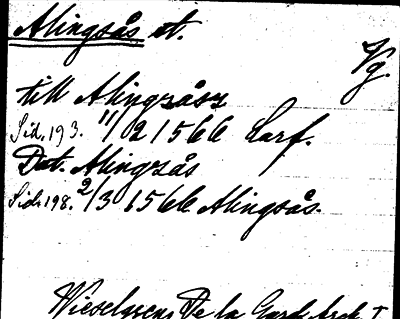 Alingsås st.
Vg.
till Alingsås
Sid. 193. 11/2 1566 Carf.
Dat. Alingsås
Sid. 198. 2/3 1566 Alingsås.
Wieselgrens De la Gard. Ark. I